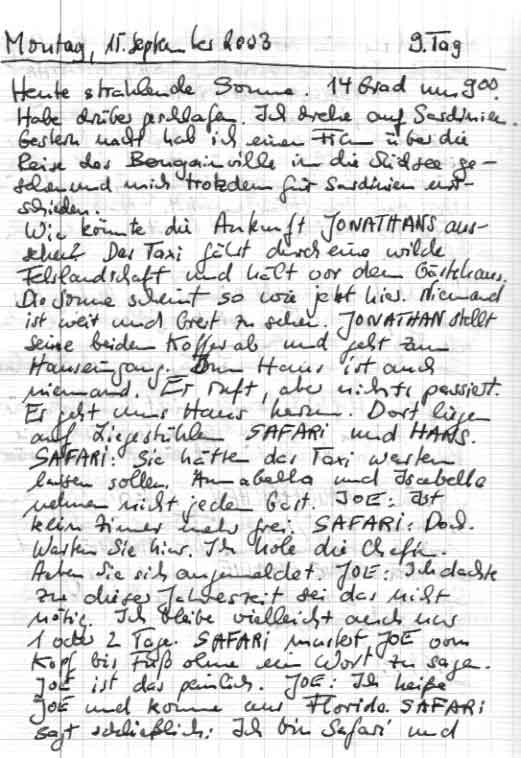 Montag, 15. September 2003 9. Tag
Heute strahlende Sonne. 14 Grad um 9 00.
Habe drüber geschlafen. Ich drehe auf Sardinien.
Gestern nacht hab ich einen Film über die
Reise des Bougainville in die Südsee ge-
sehen und mich trotzdem für Sardinien ent-
schieden.
Wie könnte die Ankunft JONATHANS aus-
sehen? Das Taxi fährt durch eine wilde
Felslandschaft und hält vor dem Gästehaus.
Die Sonne scheint so wie jetzt hier. Niemand
ist weit und breit zu sehen. JONATHAN stellt
seine beiden Koffer ab und geht zum
Hauseingang. Im Haus ist auch
niemand. Er ruft, aber nichts passiert.
Er geht ums Haus herum. Dort liegen
auf Liegestühlen SAFARI und HANS.
SAFARI: Sie hätten das Taxi warten
lassen sollen. Annabella und Isabella
nehmen nicht jeden Gast. JOE: Ist
kein Zimmer mehr frei. SAFARI: Doch.
Warten Sie hier. Ich hole die Chefin.
Haben Sie sich angemeldet. JOE: Ich dachte
zu dieser Jahreszeit sei das nicht
nötig. Ich bleibe vielleicht auch nur
1 oder 2 Tage. SAFARI mustert JOE vom
Kopf bis Fuß ohne ein Wort zu sagen.
JOE ist das peinlich. JOE: Ich heiße
JOE und komme aus Florida. SAFARI
sagt schließlich: Ich bin Safari und